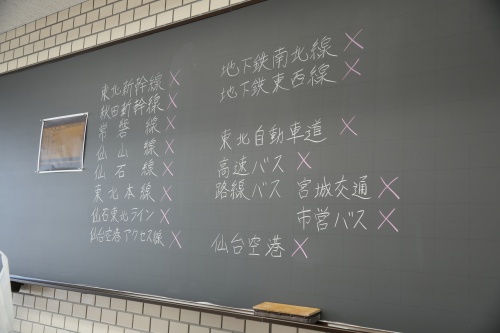 東北新幹線×
秋田新幹線×
常磐線×
仙山線×
仙石線×
東北本線×
仙石東北ライン×
仙台空港アクセス線×
地下鉄南北線×
地下鉄東西線×
東北自動車道×
高速バス×
路線バス 宮城交通×
市営バス×
仙台空港×